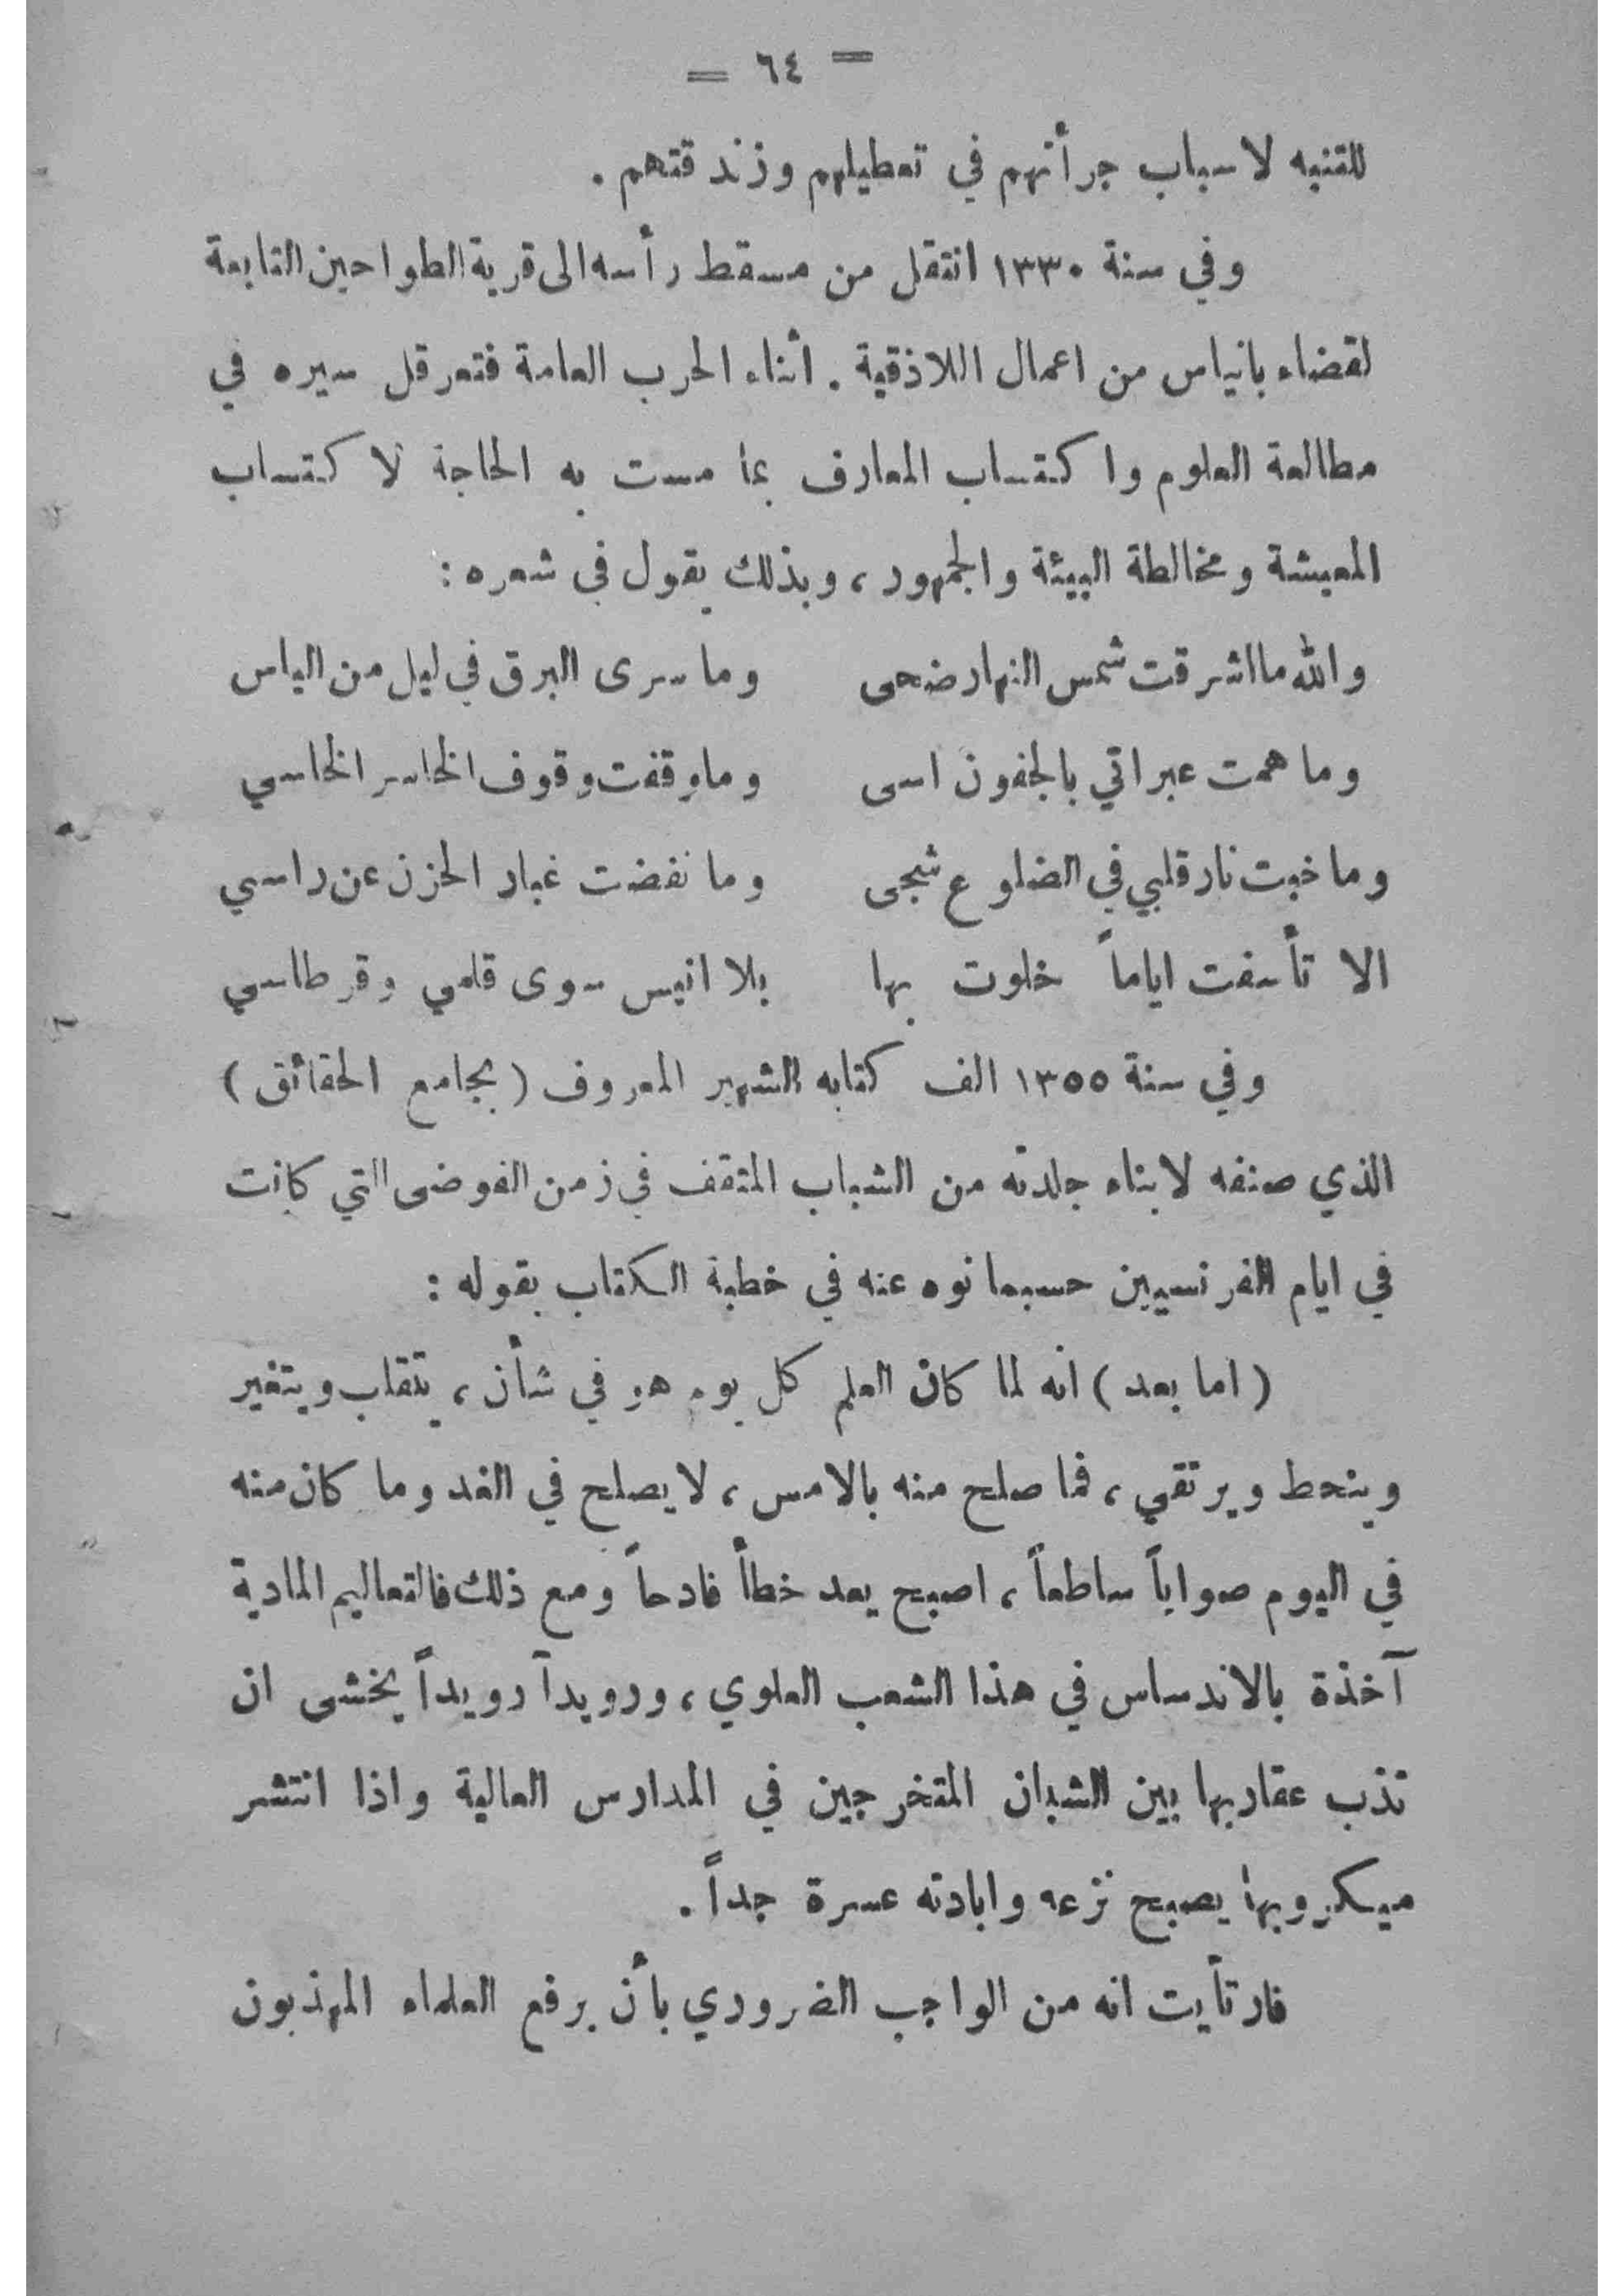 = ٦٤ =
للتنبه لاسباب جرأتهم في تعطيلهم وزندقتهم .
وفي سنة ١٣٣٠ انتقل من مسقط رأسه الى قرية الطواحين التابعة
لقضاء بانياس من اعمال اللاذقية . اثناء الحرب العامة فتعرقل سيره في
مطالعة العلوم واكتساب المعارف بما مست به الحاجة لاكتساب
المعيشة ومخالطة البيئة والجمهور ، وبذلك يقول في شعره :
والله ما اشرقت شمس النهار ضحى وما سرى البرق في ليل من الياس
وما همت عبراتي بالجفون اسى وما وقفت وقوف الخاسر الخاسي
وما خبت نار قلبي في الضلوع شجى وما نفضت غبار الحزن عن راسي
الا تأسفت اياماً خلوت بها بلا انيس سوى قلمي وقرطاسي
وفي سنة ١٣٥٥ الف كتابه الشهير المعروف ( بجامع الحقائق )
الذي صنفه لابناء جلدته من الشباب المثقف في زمن الفوضى التي كانت
في ايام الفرنسيين حسبما نوه عنه في خطبة الكتاب بقوله :
( اما بعد ) انه لما كان العلم كل يوم هو في شأن ، يتقلب ويتغير
وينحط ويرتقي ، فما صلح منه بالامس ، لا يصلح في الغد وما كان منه
في اليوم صواباً ساطعاً ، اصبح يعد خطأ فادحاً ومع ذلك فالتعاليم المادية
آخذة بالاندساس في هذا الشعب العلوي ، ورويداً رويداً يخشى ان
تذب عقاربها بين الشبان المتخرجين في المدارس العالية واذا انتشر
ميكروبها يصبح نزعه وابادته عسرة جداً .
فارتأيت انه من الواجب الضروري بأن يرفع العلماء المهذبون